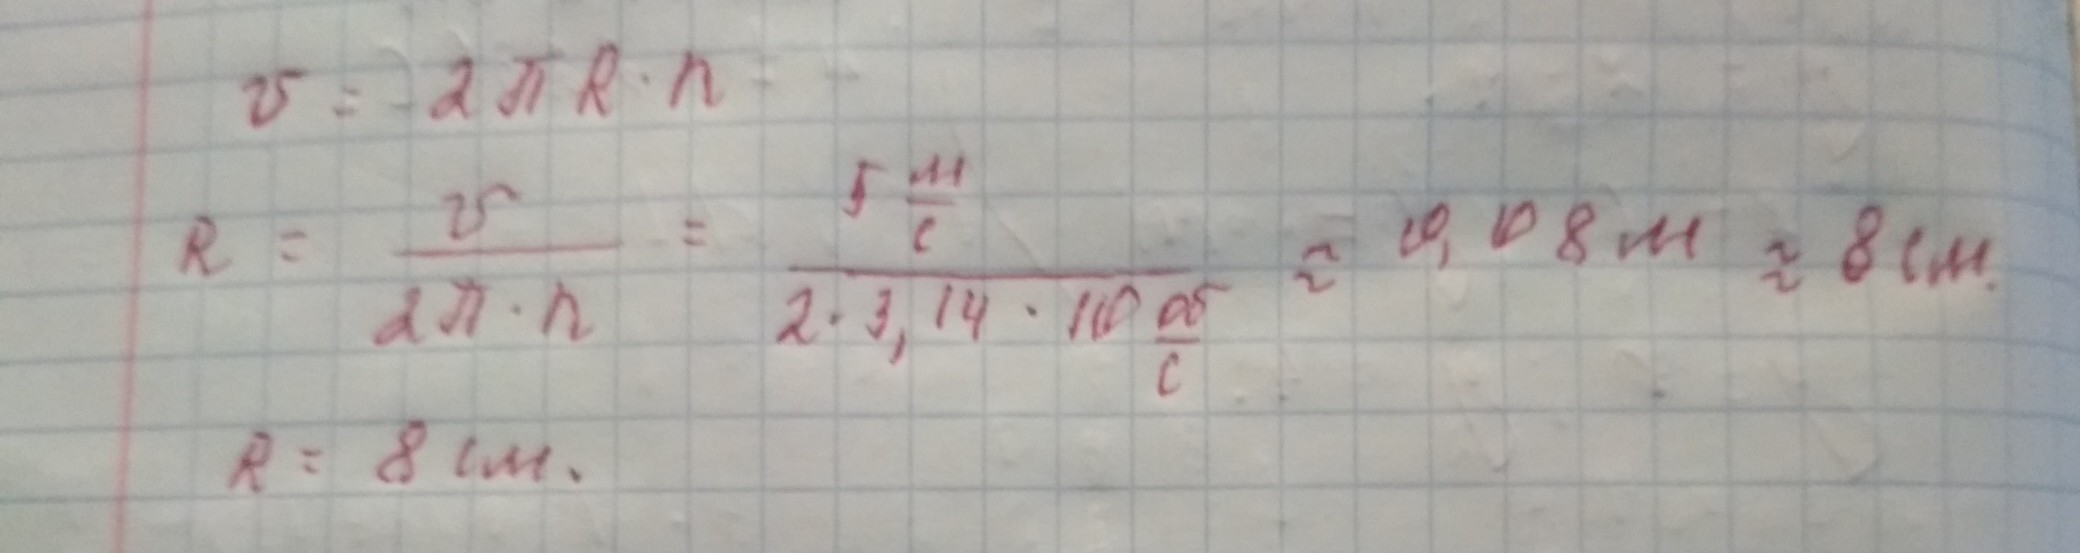 v = 2πR·n
R = v / 2π·n = 5 м/с / 2·3,14·10 об/с ≈ 0,08 м ≈ 8 см.
R = 8 см.